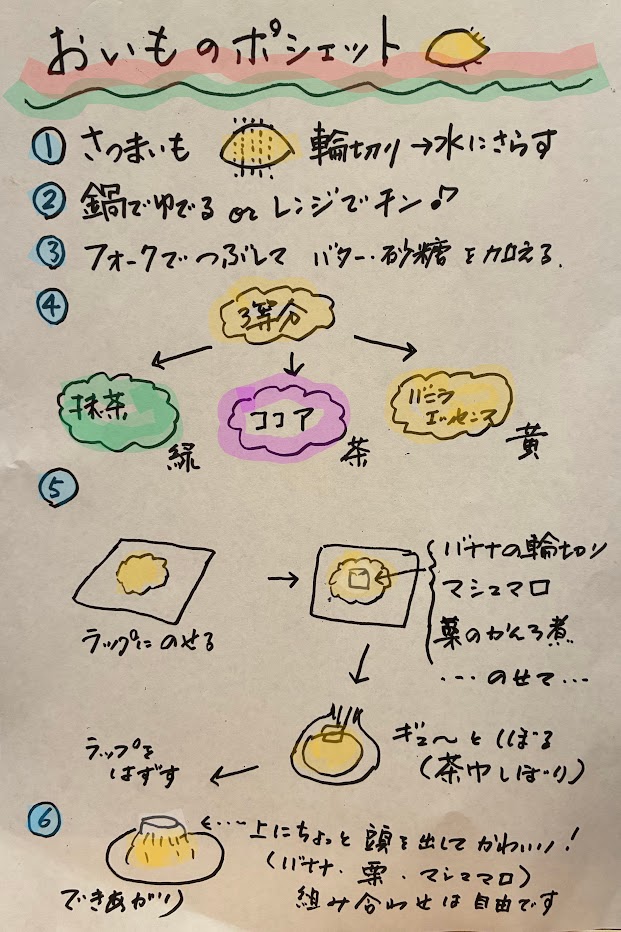 おいものポシェット
① さつまいも 輪切り→水にさらす
② 鍋でゆでる or レンジでチン♪
③ フォークでつぶして バター・砂糖を加える.
④
3等分
抹茶
緑
ココア
茶
バニラ
エッセンス
黄
⑤
ラップにのせる
バナナの輪切り
マシュマロ
栗のかんろ煮
・・・のせて・・・
ギュ〜としぼる
(茶巾しぼり)
ラップを
はずす
⑥
できあがり
上にちょっと頭を出してかわいい!
(バナナ・栗・マシュマロ)
組み合わせは自由です